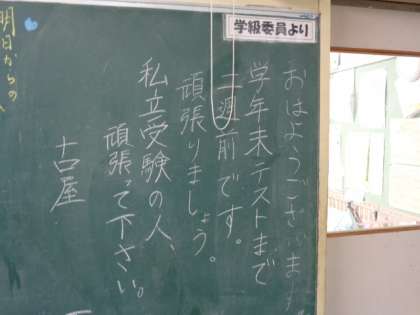 学級委員より
おはようございます
学年末テストまで
二週前です。
頑張りましょう。
私立受験の人、
頑張って下さい。
古屋
明日からの